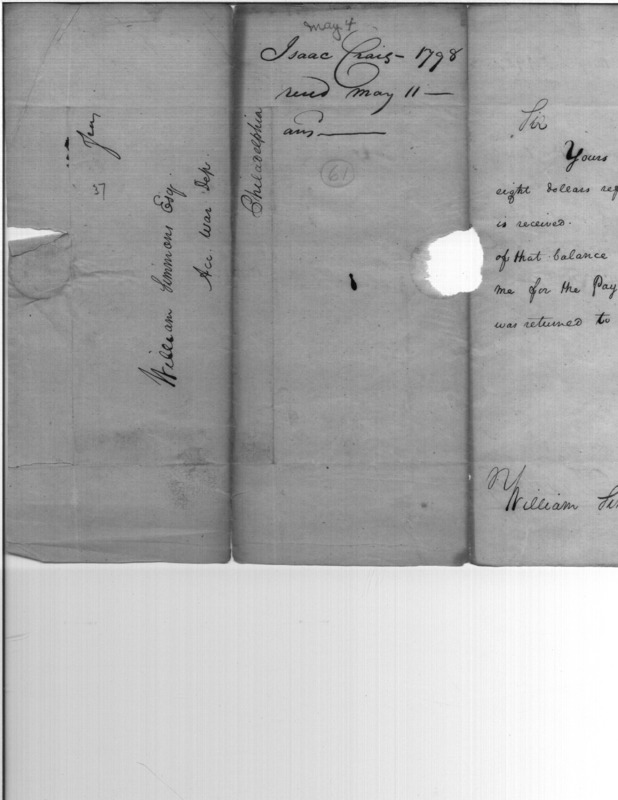 May 4
Isaac Craig - 1798
recd May 11 —
ans ———
61
William Simmons Esq.
Acc. War Dep.
Philadelphia
Sir
Yours
eight dollars
is received.
of that balance
me for the Pay
was returned to
William